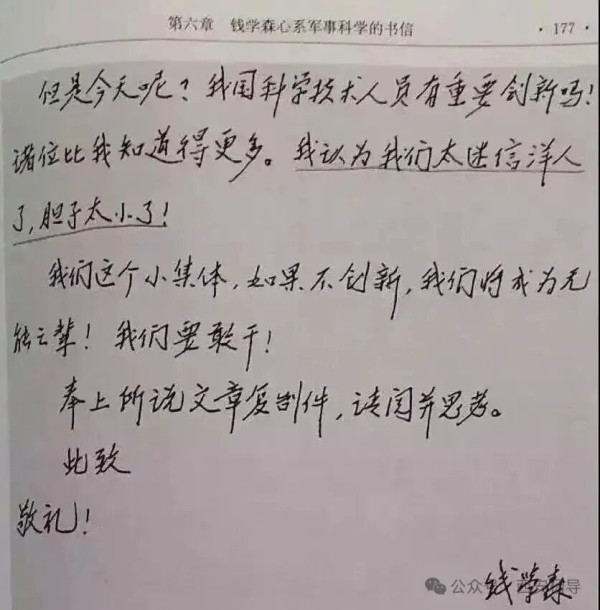 第六章 钱学森心系军事科学的书信 ·177·
但是今天呢？我国科学技术人员有重要创新吗！
诸位比我知道得更多。我认为我们太迷信洋人
了，胆子太小了！
我们这个小集体，如果不创新，我们将成为无
能之辈！我们要敢干！
奉上所说文章复制件，请阅并思考。
此致
敬礼！
钱学森
公众号